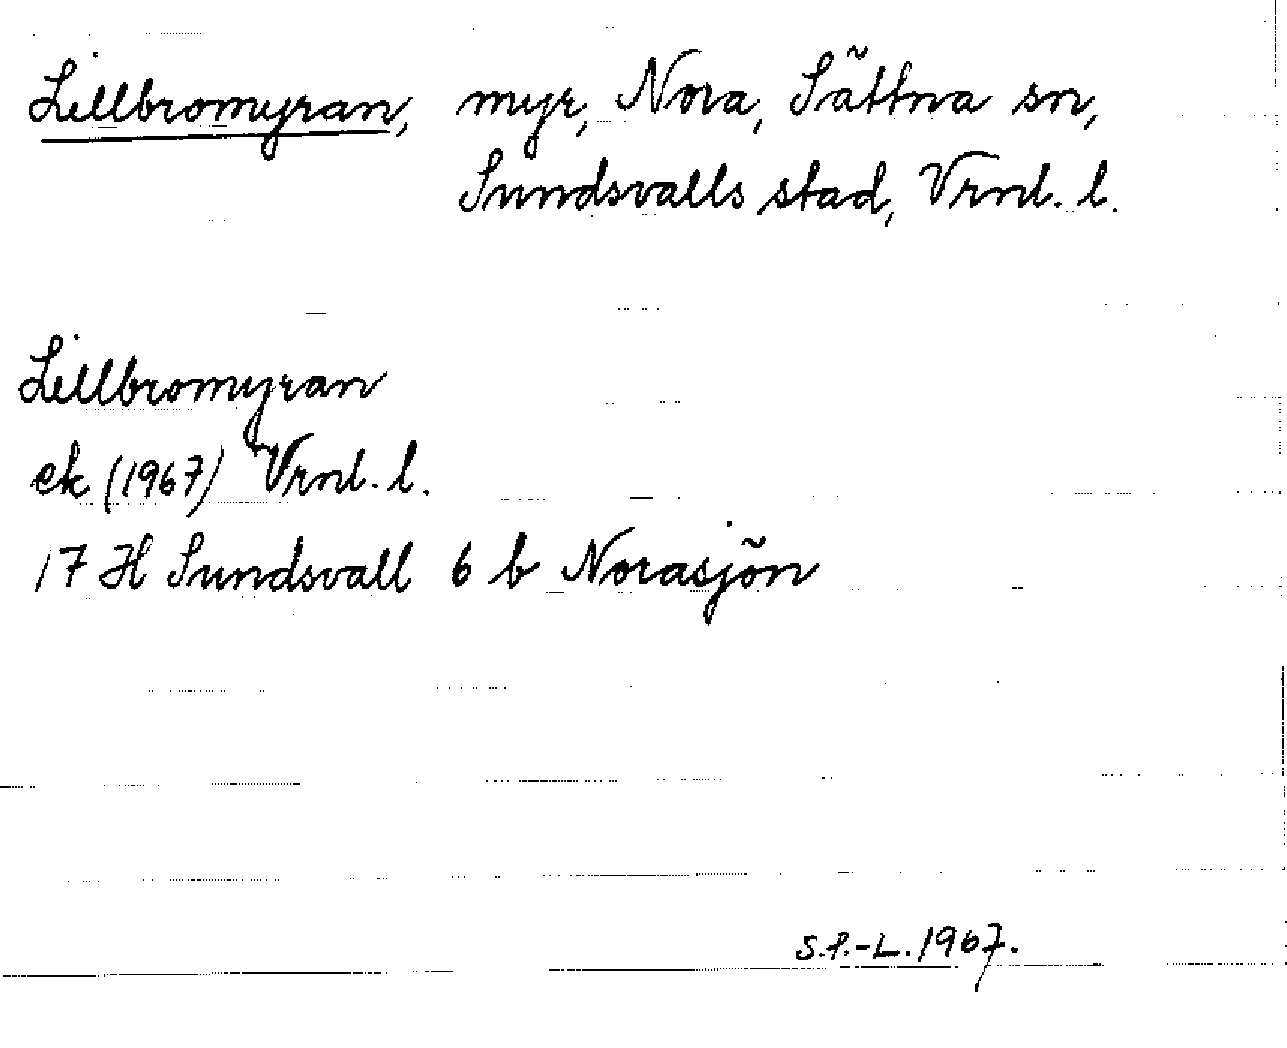 Lillbromyran, myr, Nora, Sättna sn,
Sundsvalls stad, Vrnl. l.
Lillbromyran
ek (1967) Vrnl. l.
17 H Sundsvall 6 b Norasjön
S.P.-L. 1967.